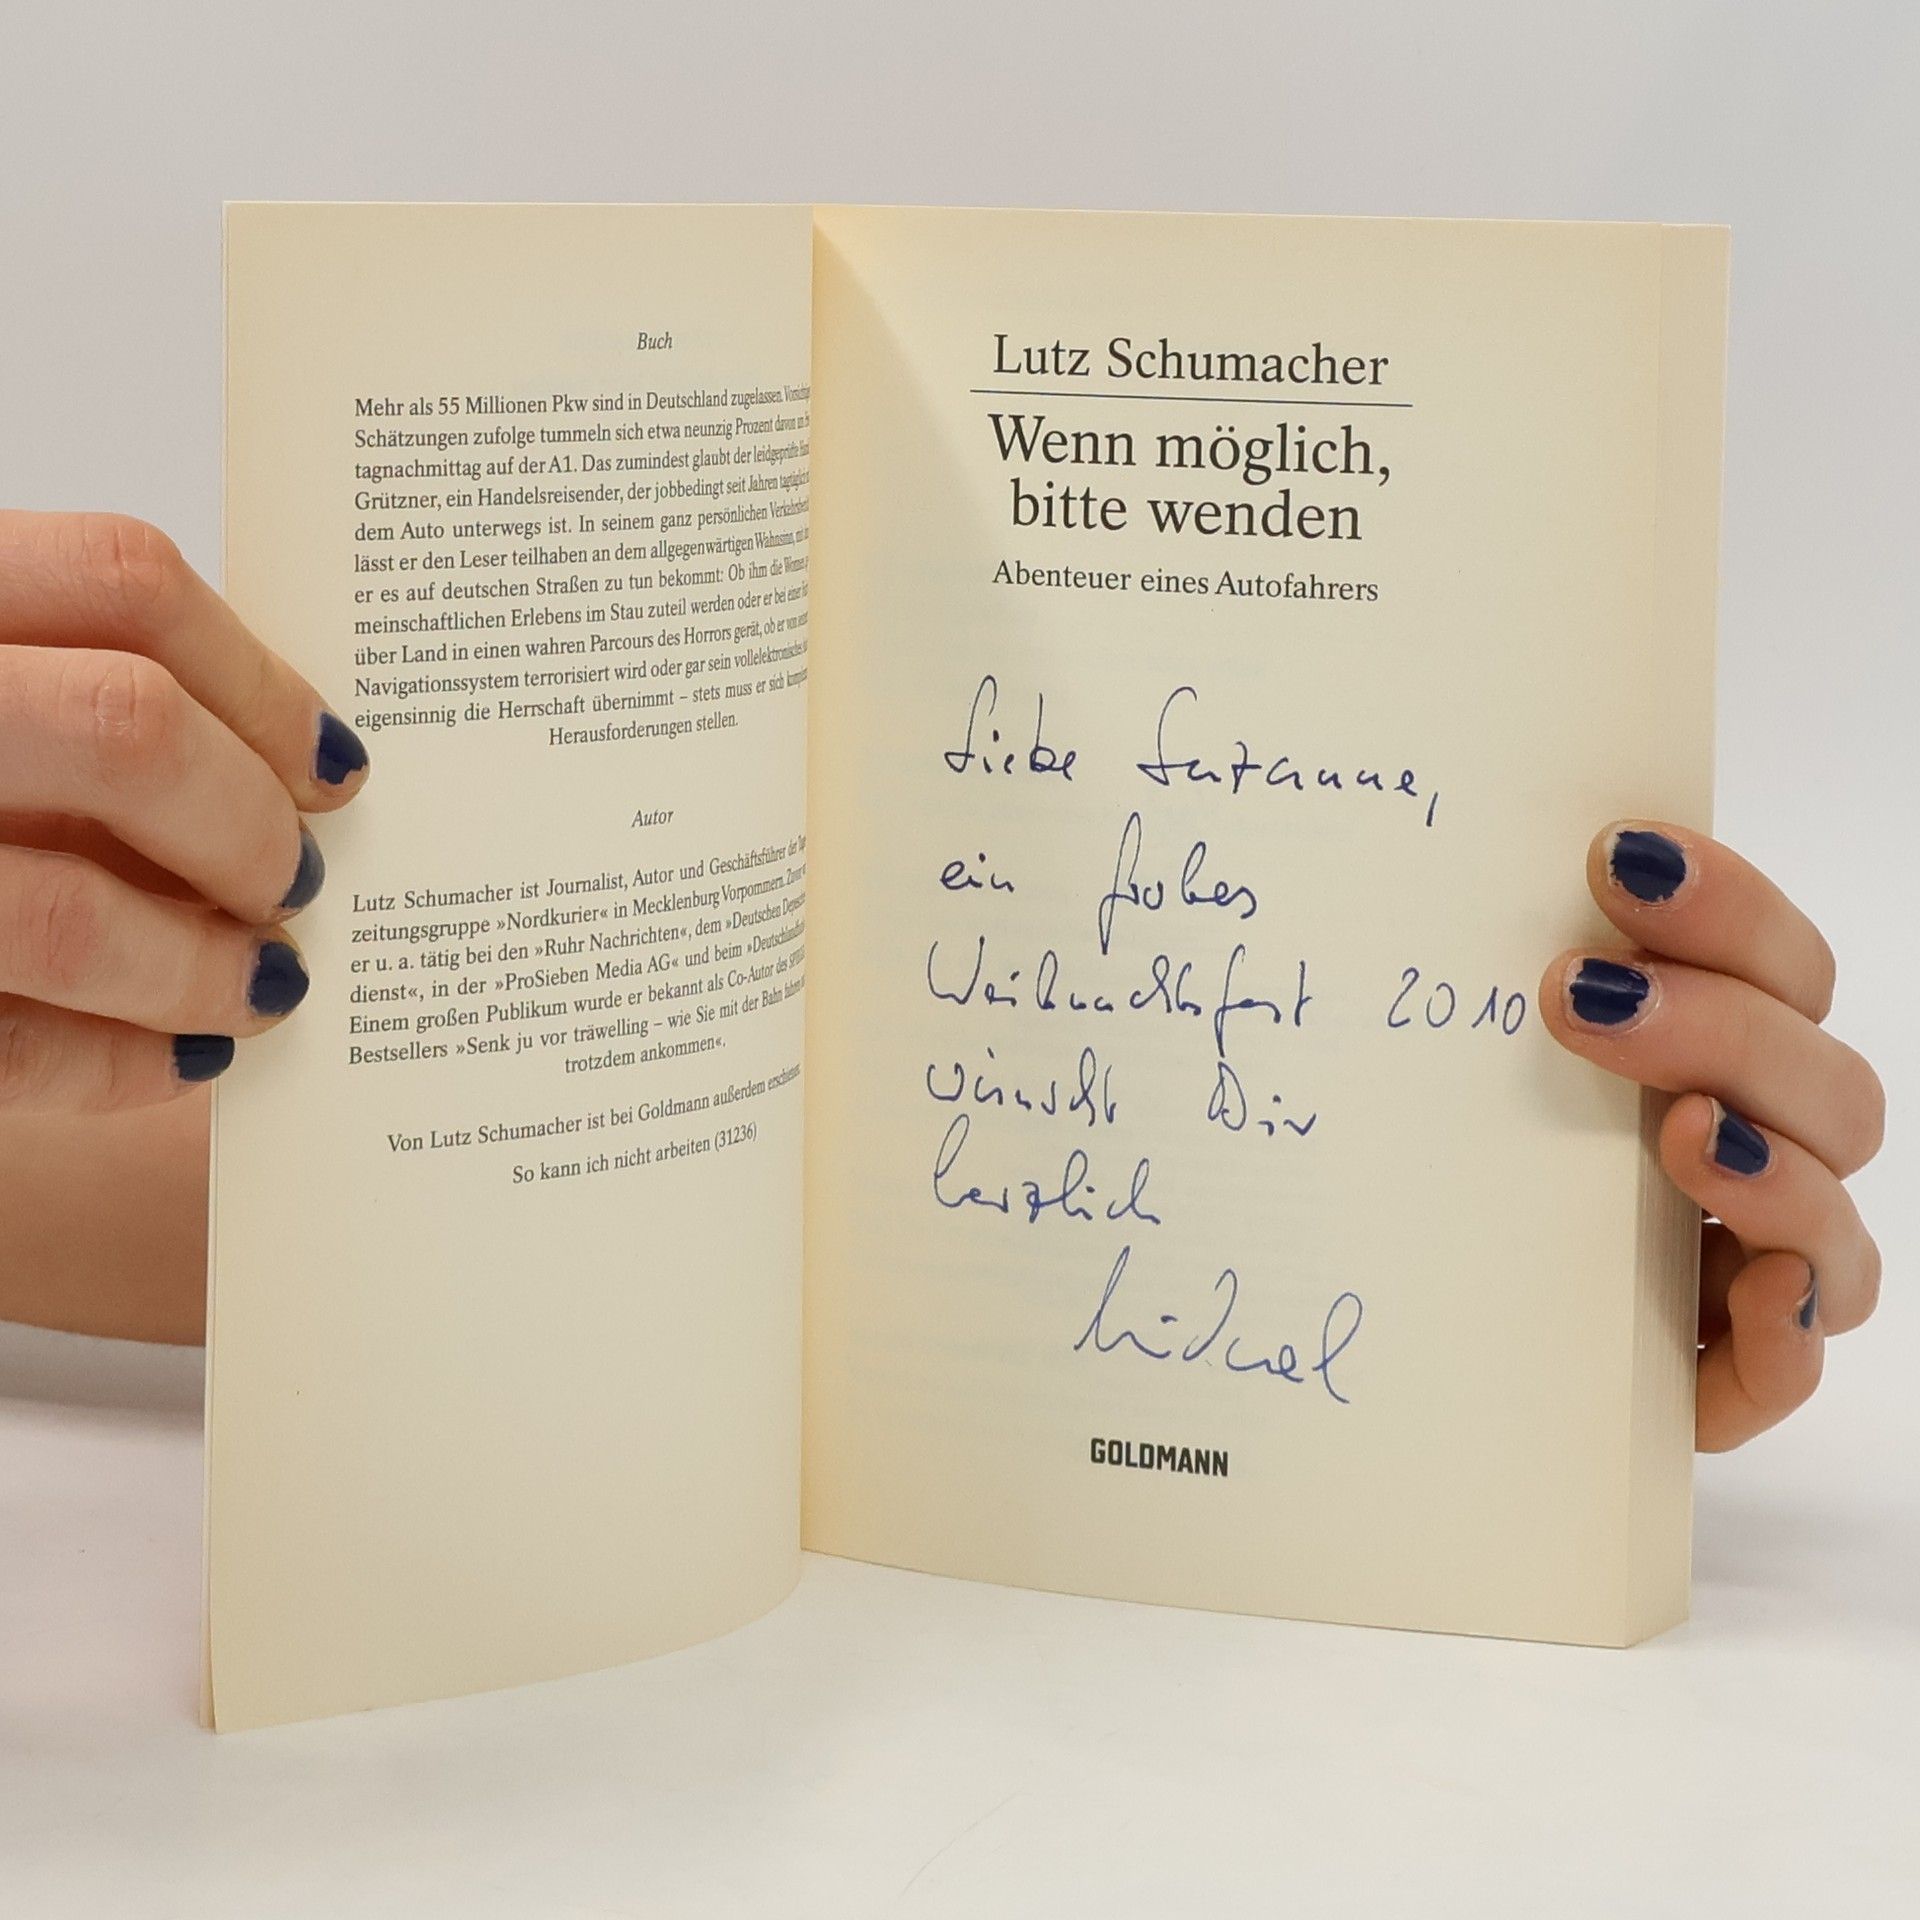 Buch
Mehr als 55 Millionen Pkw sind in Deutschland zugelassen.
Schätzungen zufolge tummeln sich etwa neunzig Prozent davon
tagnachmittag auf der A1. Das zumindest glaubt der leidgeprüfte
Grützner, ein Handelsreisender, der jobbedingt seit Jahren
dem Auto unterwegs ist. In seinem ganz persönlichen
lässt er den Leser teilhaben an dem allgegenwärtigen Wahnsinn, mit
er es auf deutschen Straßen zu tun bekommt: Ob ihm die
meinschaftlichen Erlebens im Stau zuteil werden oder er bei einer
über Land in einen wahren Parcours des Horrors gerät, ob er von
Navigationssystem terrorisiert wird oder gar sein vollelektronisches
eigensinnig die Herrschaft übernimmt – stets muss er sich
Herausforderungen stellen.
Autor
Lutz Schumacher ist Journalist, Autor und Geschäftsführer der
zeitungsgruppe »Nordkurier« in Mecklenburg Vorpommern. Zuvor
er u. a. tätig bei den »Ruhr Nachrichten«, dem »Deutschen
dienst«, in der »ProSieben Media AG« und beim
Einem großen Publikum wurde er bekannt als Co-Autor des
Bestsellers »Senk ju vor träwelling – wie Sie mit der Bahn fahren
trotzdem ankommen«.
Von Lutz Schumacher ist bei Goldmann außerdem erschienen
So kann ich nicht arbeiten (31236)
Lutz Schumacher
Wenn möglich,
bitte wenden
Abenteuer eines Autofahrers
Liebe Suzanne,
ein frohes
Weihnachtsfest 2010
wünscht Dir
herzlich
Michael
GOLDMANN